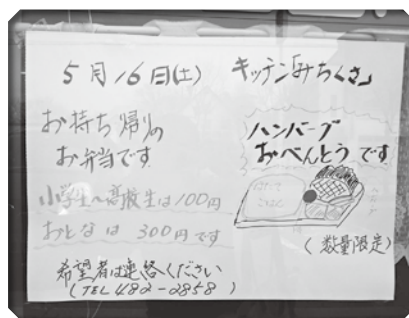 5月16日(土) キッチン「みちくさ」
お持ち帰りの
お弁当です
小学生~高校生は100円
おとなは300円です
希望者は連絡ください
(TEL 482-2858)
ハンバーグ
おべんとうです
(数量限定)